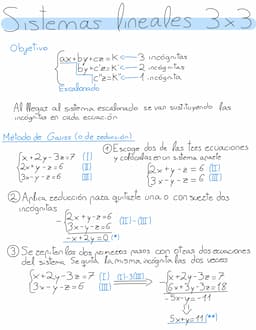 Sistemas lineales 3x3
Objetivo
ax+by+cz=K ← 3 incógnitas
b'y+c'z=K' ← 2 incógnitas
c''z=K'' ← 1 incógnita
Escalonado
Al llegar al sistema escalonado se van sustituyendo las
incógnitas en cada ecuación
Metodo de Gauss (o de reducción)
① Escoge dos de las tres ecuaciones
y colócalas en un sistema aparte
x+2y-3z=7 (I)
2x+y-z=6 (II)
3x-y-z=6 (III)
2x+y-z=6 (II)
3x-y-z=6 (III)
② Aplica reducción para quitarte una o con suerte dos
incógnitas
2x+y-z=6 (II-III)
3x-y-z=6
-x+2y=0 (*)
③ Se repiten los dos primeros pasos con otras dos ecuaciones
del sistema. Seguir la misma incógnita las dos veces
x+2y-3z=7 (I)
3x-y-z=6 (III)
(I-3III)
x+2y-3z=7
-5x-y=-11
5x+y=11 (**)